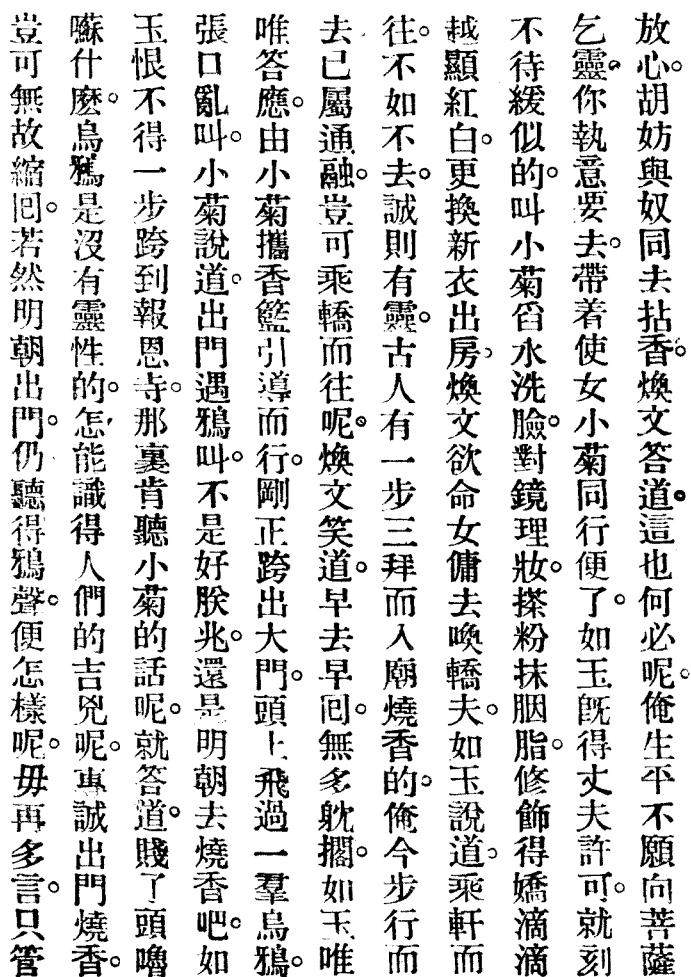 放心。胡妨與奴同去拈香。煥文答道。這也何必呢。俺生平不願向菩薩
乞靈。你執意要去。帶着使女小菊同行便了。如玉旣得丈夫許可。就刻
不待緩似的。叫小菊舀水洗臉。對鏡理妝。搽粉抹胭脂。修飾得嬌滴滴
越顯紅白。更換新衣出房。煥文欲命女傭去喚轎夫。如玉說道。乘軒而
往。不如不去。誠則有靈。古人有一步三拜而入廟燒香的。俺今步行而
去。已屬通融。豈可乘轎而往呢。煥文笑道。早去早囘。無多躭擱。如玉唯
唯答應。由小菊攜香籃引導而行。剛正跨出大門。頭上飛過一羣烏鴉。
張口亂叫。小菊說道。出門遇鴉叫。不是好朕兆。還是明朝去燒香吧。如
玉恨不得一步跨到報恩寺。那裏肯聽小菊的話呢。就答道。賤了頭嚕
囌什麽。烏鴉是沒有靈性的。怎能識得人們的吉兇呢。專誠出門燒香。
豈可無故縮囘。若然明朝出門。仍聽得鴉聲。便怎樣呢。毋再多言。只管